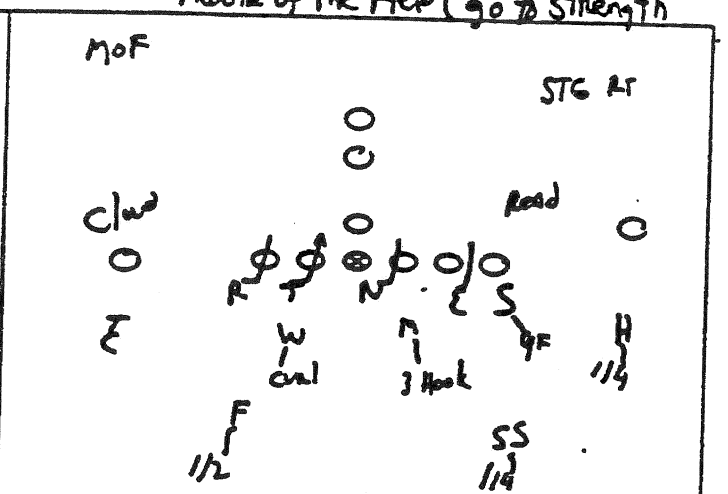 Middle of the Field (go to Strength
MOF
STG RT
Cloud
Read
R T N E S
E W M H
Curl 3 Hook 9F 1/4
F SS
1/2 1/4